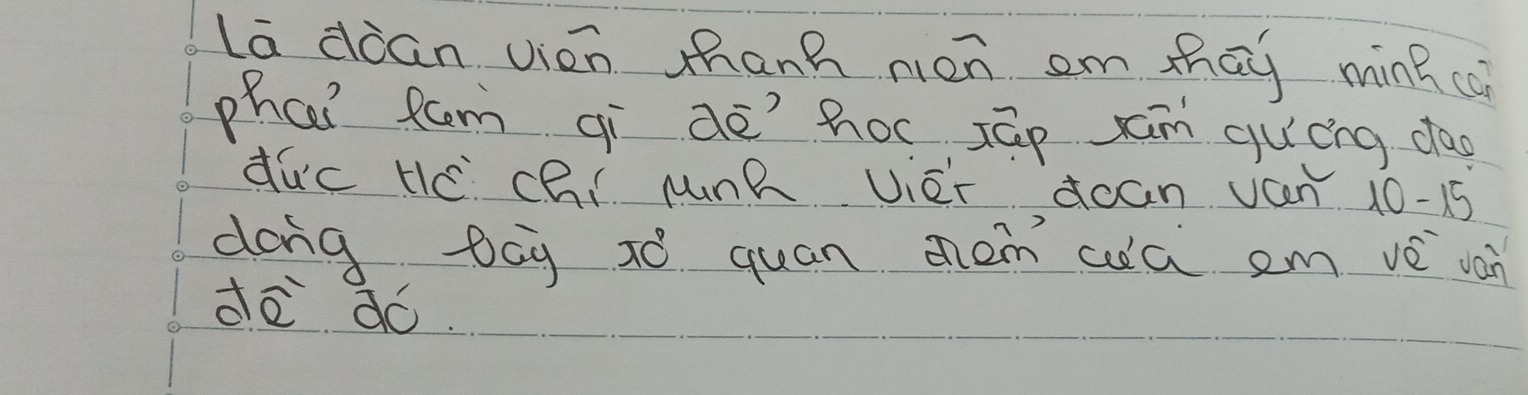 Là đoàn viên thanh niên em thấy mình cần
phải làm gì để học tập tấm gương đạo
đức Hồ Chí Minh. Viết đoạn văn 10-15
dòng bày tỏ quan điểm của em về vấn
đề đó.